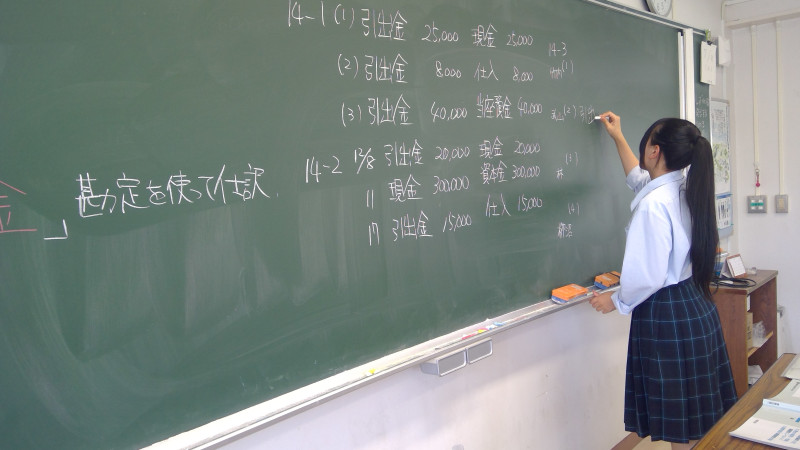 金
」勘定を使って仕訳
14-1 (1) 引出金 25,000 現金 25,000
(2) 引出金 8,000 仕入 8,000
(3) 引出金 40,000 当座預金 40,000
14-2 12/8 引出金 20,000 現金 20,000
11 現金 300,000 資本金 300,000
17 引出金 15,000 仕入 15,000
14-3
(1)
(2) 引出
(3)
(4)